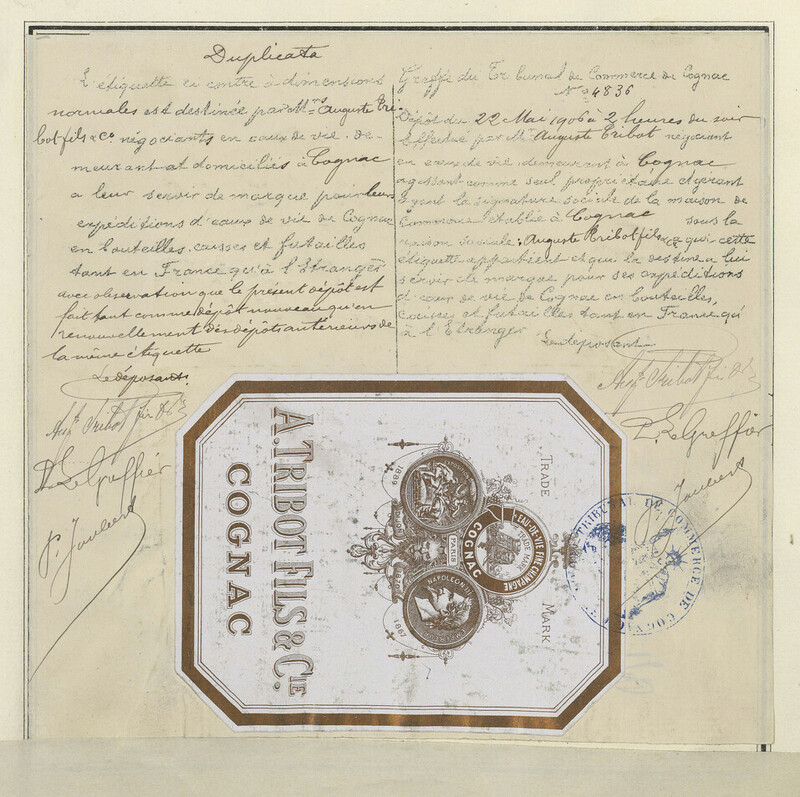 Duplicata
L'étiquette ci contre à dimensions
normales est destinée par M.rs Auguste Tri-
bot fils & Co négociants en eaux de vie. de-
meurant et domiciliés à Cognac
a leur servir de marque pour leurs
expéditions d'eaux de vie de Cognac
en bouteilles, caisses et futailles
tant en France qu'à l'étranger
avec observation que le présent dépôt est
fait tant comme dépôt nouveau qu'en
renouvellement des dépôts antérieurs de
la même étiquette
Le déposant.
Aug.te Tribot fils & Co
P. Le Greffier
P. Joubert
Greffe du Tribunal de Commerce de Cognac
No 4836
Dépôt du 22 Mai 1906 à 2 heures du soir
Effectué par Mr. Auguste Tribot négociant
en eaux de vie demeurant à Cognac
agissant comme seul propriétaire et gérant
ayant la signature sociale de la maison de
Commerce établie à Cognac sous la
raison sociale: Auguste Tribot fils & Co à qui cette
étiquette appartient et qui la destine a lui
servir de marque pour ses expéditions
d'eaux de vie de Cognac en bouteilles,
Caisses et futailles tant en France qu'
à l'Etranger
Le déposant
Aug.te Tribot fils & Co
P. Le Greffier
Joubert
A. TRIBOT FILS & CIE
COGNAC
TRADE MARK
1889
PARIS
EAU-DE-VIE FINE CHAMPAGNE
TRADE MARK
COGNAC
NAPOLEON III
EMPEREUR
1867
TRIBUNAL DE COMMERCE DE COGNAC